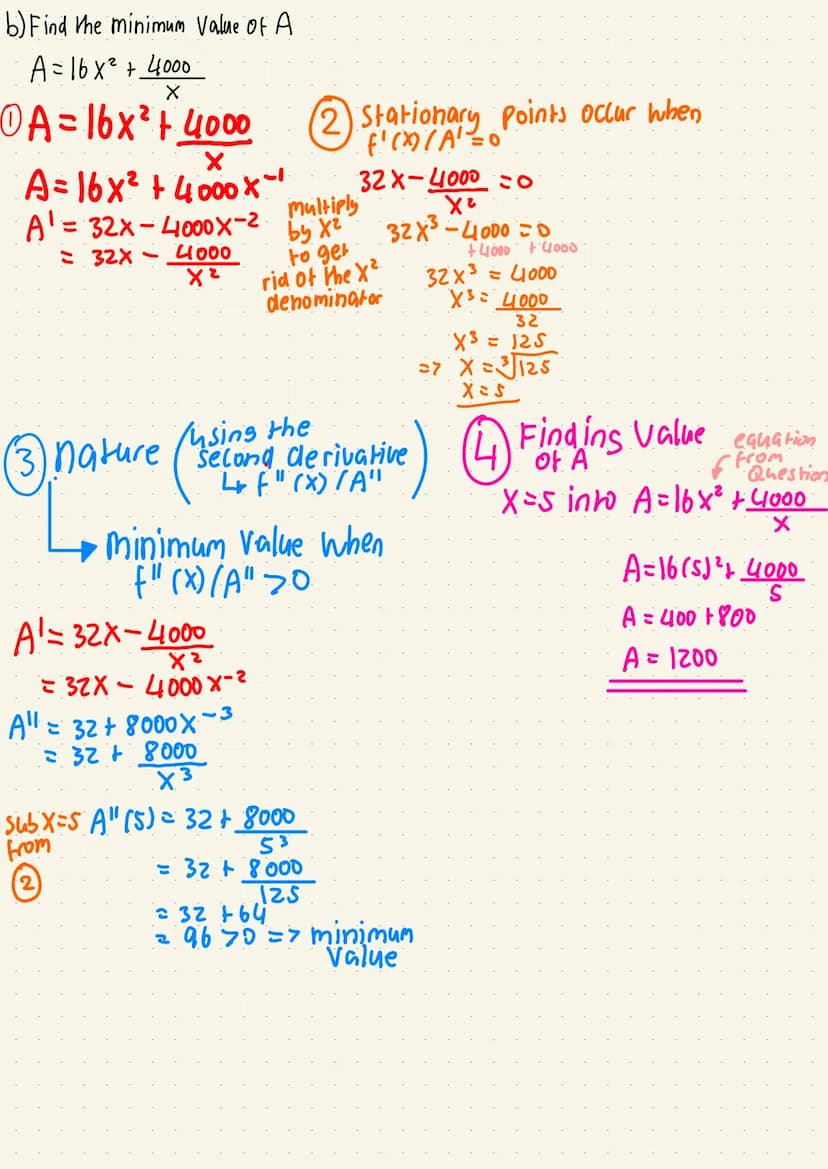 b) Find the minimum value of A
A = 16x² + 4000/x
① A = 16x² + 4000/x
A = 16x² + 4000x⁻¹
A' = 32x − 4000x⁻²
= 32x − 4000/x²
② Stationary points occur when
f'(x)/A' = 0
32x − 4000/x² = 0
multiply
by x²
to get
rid of the x²
denominator
32x³ − 4000 = 0
+4000 +4000
32x³ = 4000
x³ = 4000/32
x³ = 125
=> x = ³√125
x = 5
③ nature (using the
second derivative
↳ f''(x)/A'')
→ minimum value when
f''(x)/A'' > 0
A' = 32x − 4000/x²
= 32x − 4000x⁻²
A'' = 32 + 8000x⁻³
= 32 + 8000/x³
sub x=5
from
②
A''(5) = 32 + 8000/5³
= 32 + 8000/125
= 32 + 64
= 96 > 0 => minimum
value
④ Finding value
of A
equation
from
Question
x=5 into A = 16x² + 4000/x
A = 16(5)² + 4000/5
A = 400 + 800
A = 1200